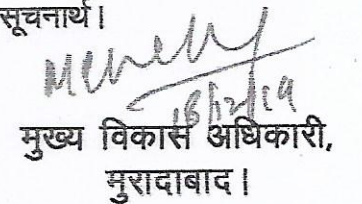 सूचनार्थ।
मुख्य विकास अधिकारी,
मुरादाबाद।